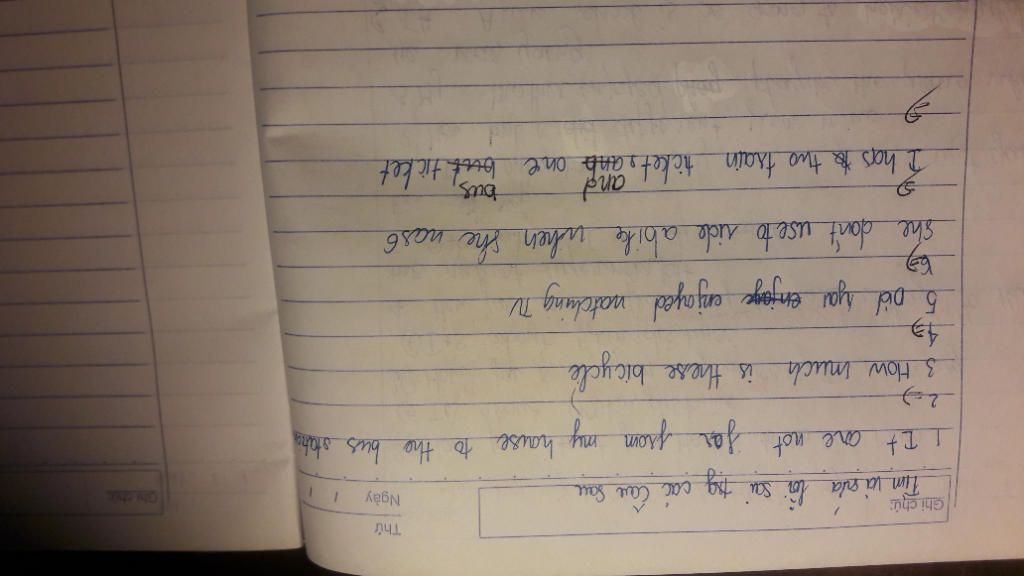 Ghi chú:
Thứ
Ngày / /
Ghi chú:
Tìm và sửa lỗi sai trg các câu sau
1 It are not far from my house to the bus station
2 =>
3 How much is these bicycle
4 =>
5 Did you enjoyed watching TV
6 =>
She don't use to ride a bike when she was 6
=>
and bus
I has two train ticket, one ticket
=>